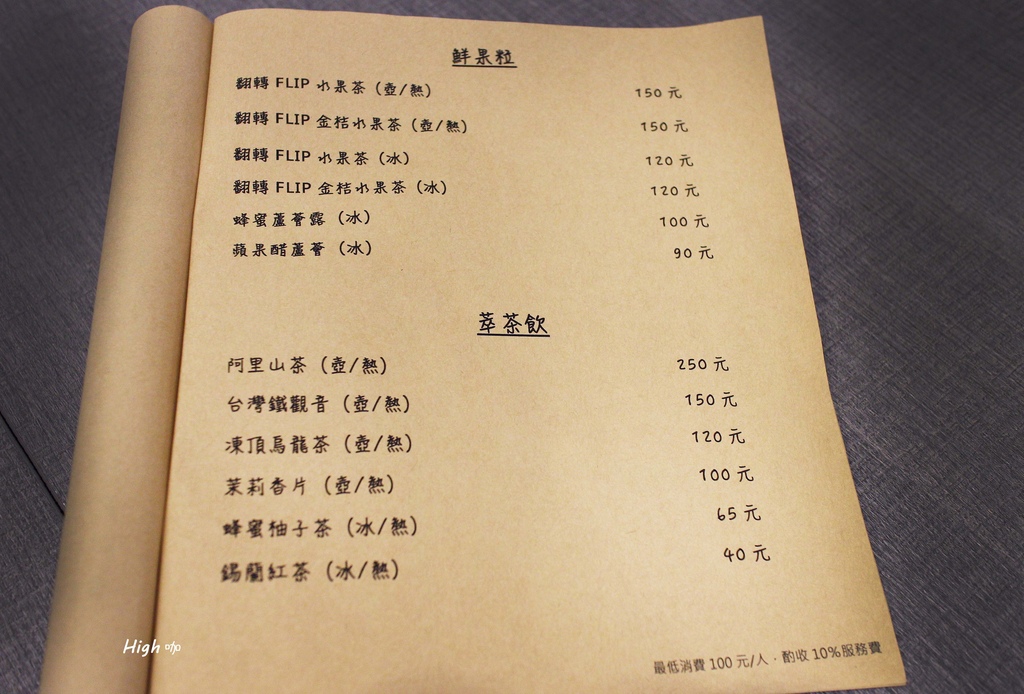 鮮果粒
翻轉 FLIP 水果茶 (壺/熱) 150 元
翻轉 FLIP 金桔水果茶 (壺/熱) 150 元
翻轉 FLIP 水果茶 (冰) 120 元
翻轉 FLIP 金桔水果茶 (冰) 120 元
蜂蜜蘆薈露 (冰) 100 元
蘋果醋蘆薈 (冰) 90 元
萃茶飲
阿里山茶 (壺/熱) 250 元
台灣鐵觀音 (壺/熱) 150 元
凍頂烏龍茶 (壺/熱) 120 元
茉莉香片 (壺/熱) 100 元
蜂蜜柚子茶 (冰/熱) 65 元
錫蘭紅茶 (冰/熱) 40 元
最低消費 100 元/人．酌收 10% 服務費
High 咖